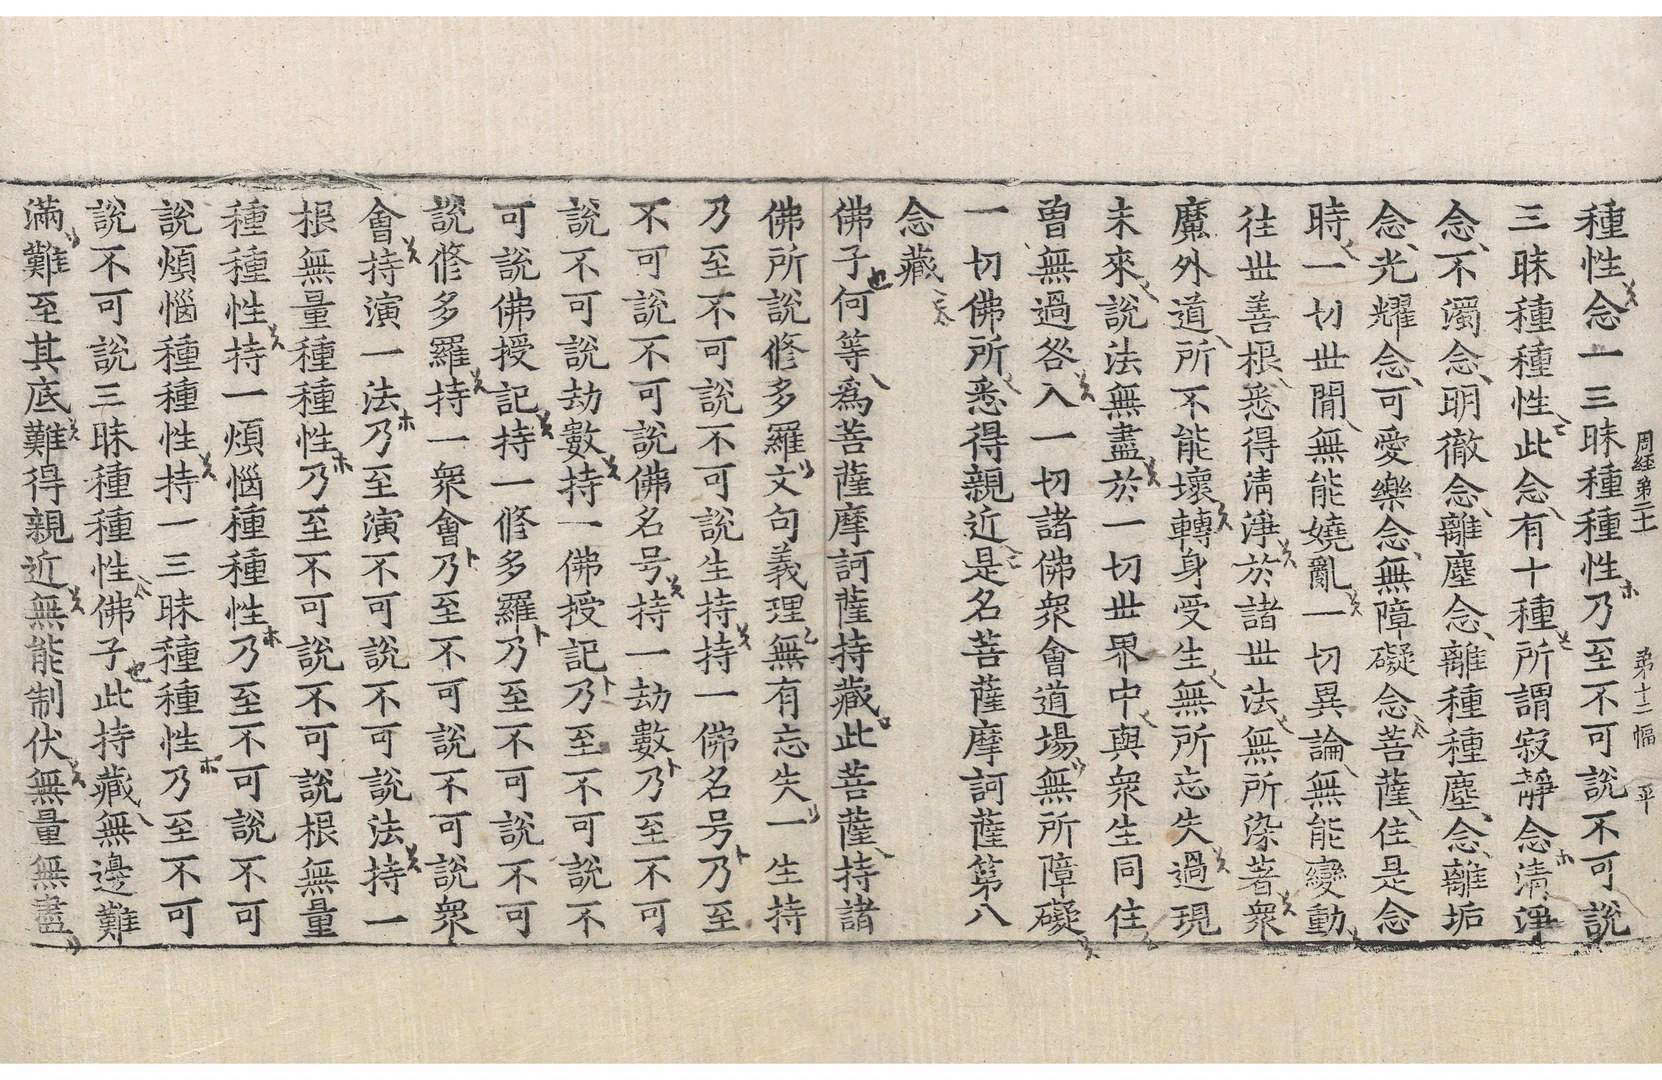 周經第二十一 第十二幅 平
種性念一三昧種種性乃至不可說不可說
三昧種種性此念有十種所謂寂靜念清淨
念不濁念明徹念離塵念離種種塵念離垢
念光耀念可愛樂念無障礙念菩薩住是念
時一切世閒無能嬈亂一切異論無能變動
往世善根悉得清淨於諸世法無所染著衆
魔外道所不能壞轉身受生無所忘失過現
未來說法無盡於一切世界中與衆生同住
曾無過咎入一切諸佛衆會道場無所障礙
一切佛所悉得親近是名菩薩摩訶薩第八
念藏
佛子何等爲菩薩摩訶薩持藏此菩薩持諸
佛所說修多羅文句義理無有忘失一生持
乃至不可說不可說生持持一佛名号乃至
不可說不可說佛名号持一劫數乃至不可
說不可說劫數持一佛授記乃至不可說不
可說佛授記持一修多羅乃至不可說不可
說修多羅持一衆會乃至不可說不可說衆
會持演一法乃至演不可說不可說法持一
根無量種種性乃至不可說不可說根無量
種種性持一煩惱種種性乃至不可說不可
說煩惱種種性持一三昧種種性乃至不可
說不可說三昧種種性佛子此持藏無邊難
滿難至其底難得親近無能制伏無量無盡